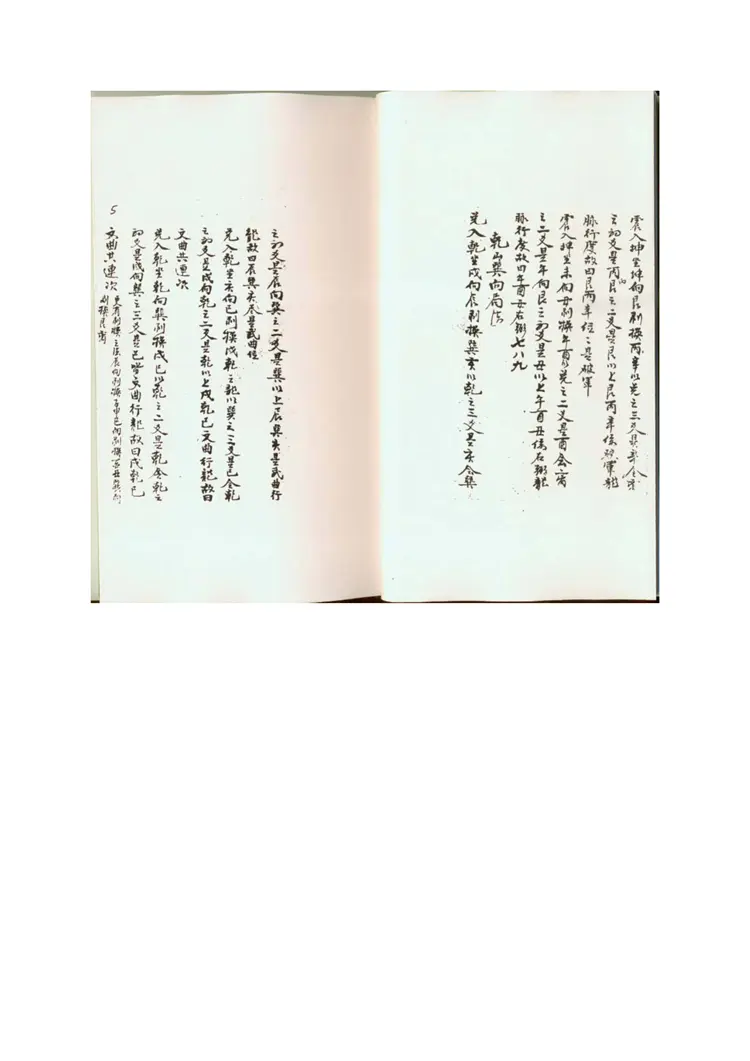 震入坤坐坤向艮剐換丙辛以兑之三爻是辛合艮
之初爻是丙艮之二爻是艮以上艮丙辛係破軍龍
脉行度故曰艮丙辛位二是破軍
震入坤坐未向丑剐換午酉以兑之二爻是酉合离
之二爻是午向艮之初爻是丑以上午酉丑係右弼龍
脉行度故曰午酉丑右弼七八九
乾山巽向局法
兑入乾坐戌向辰剐換巽亥以乾之三爻是亥合巽
之初爻是辰向巽之二爻是巽以上辰巽亥是武曲行
龍故曰辰巽亥尽是武曲位
兑入乾坐亥向巳剐換戌乾之龍以巽之三爻是巳合乾
之初爻是戌向乾之二爻是乾以上戌乾巳文曲行龍故曰
文曲共連次
兑入乾坐乾向巽剐換戌巳以乾之二爻是乾合乾之
初爻是戌向巽之三爻是巳皆文曲行龍故曰戌乾巳
文曲共連次 更有剐換之法辰向剐換子申巳向剐換
剐換艮丙
5